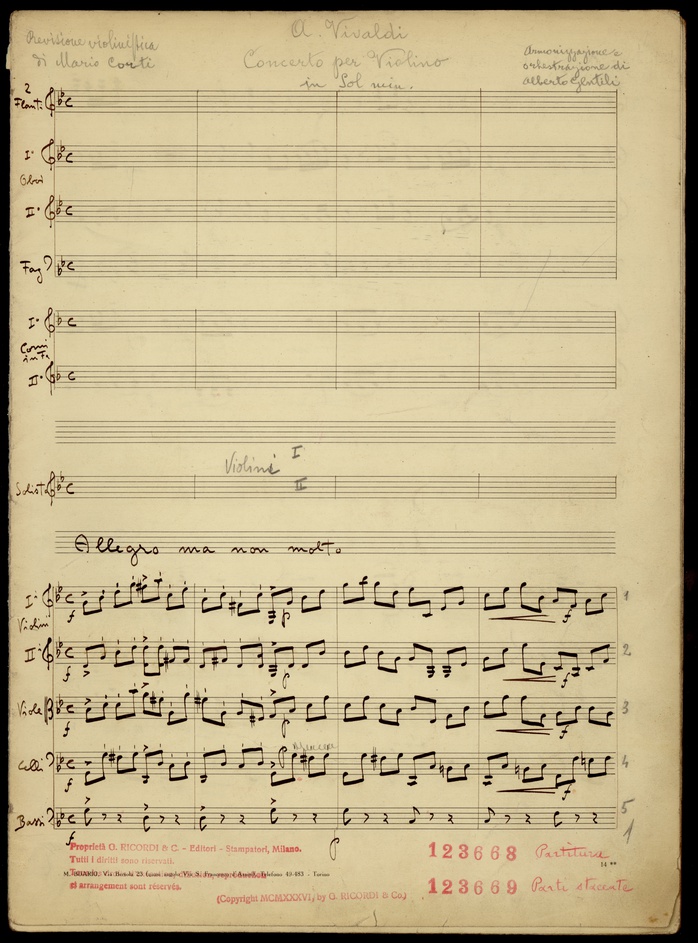 A. Vivaldi
Revisione violinistica
di Mario Corti
Concerto per Violino
in Sol min.
Armonizzazione e
orchestrazione di
Alberto Gentili
2
Flauti
I°
Oboi
II°
Fag.
I°
Corni
in Fa
II°
Violini I
II
Solista
Allegro ma non molto
I°
Violini
II°
Viole
Celli
Bassi
f
f
f
f
f
p
p
p
p
p
f
f
f
f
1
2
3
4
5
1
Proprietà G. RICORDI & C. - Editori - Stampatori, Milano.
Tutti i diritti sono riservati.
et arrangement sont réservés.
(Copyright MCMXXXVI, by G. RICORDI & Co.)
123668 Partitura
14
123669 Parti staccate